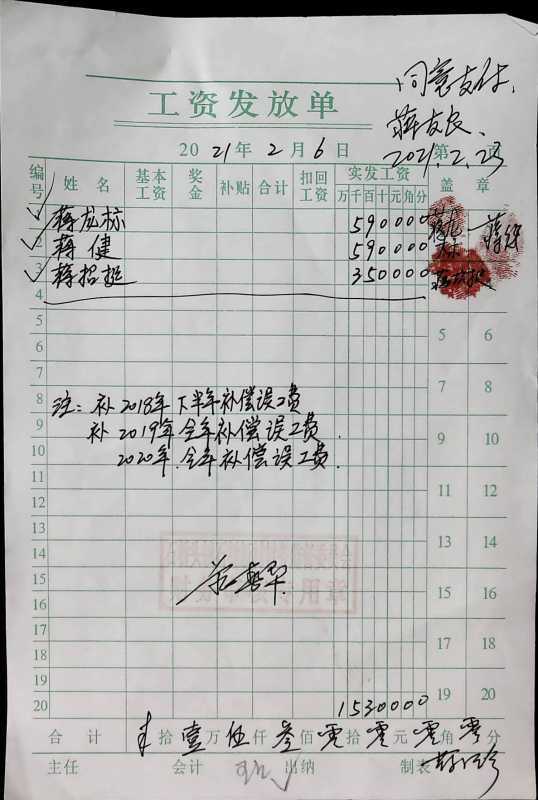 同意支付.
蒋友良.
2021.2.23
工资发放单
2021年2月6日
第 页
编号 姓名 基本工资 奖金 补贴 合计 扣回工资 实发工资 万千百十元角分 盖章
1 蒋龙标 590000
2 蒋健 590000
3 蒋招挺 350000
4
5 5 6
6
7 7 8
8 注:补2018年下半年补偿误工费
9 补2019年全年补偿误工费. 9 10
10 2020年.全年补偿误工费.
11 11 12
12
13 13 14
14
15 15 16
16
17 17 18
18
19 19 20
20 1530000
合计 拾壹万伍仟叁佰零拾零元零角零分
主任 会计 出纳 制表